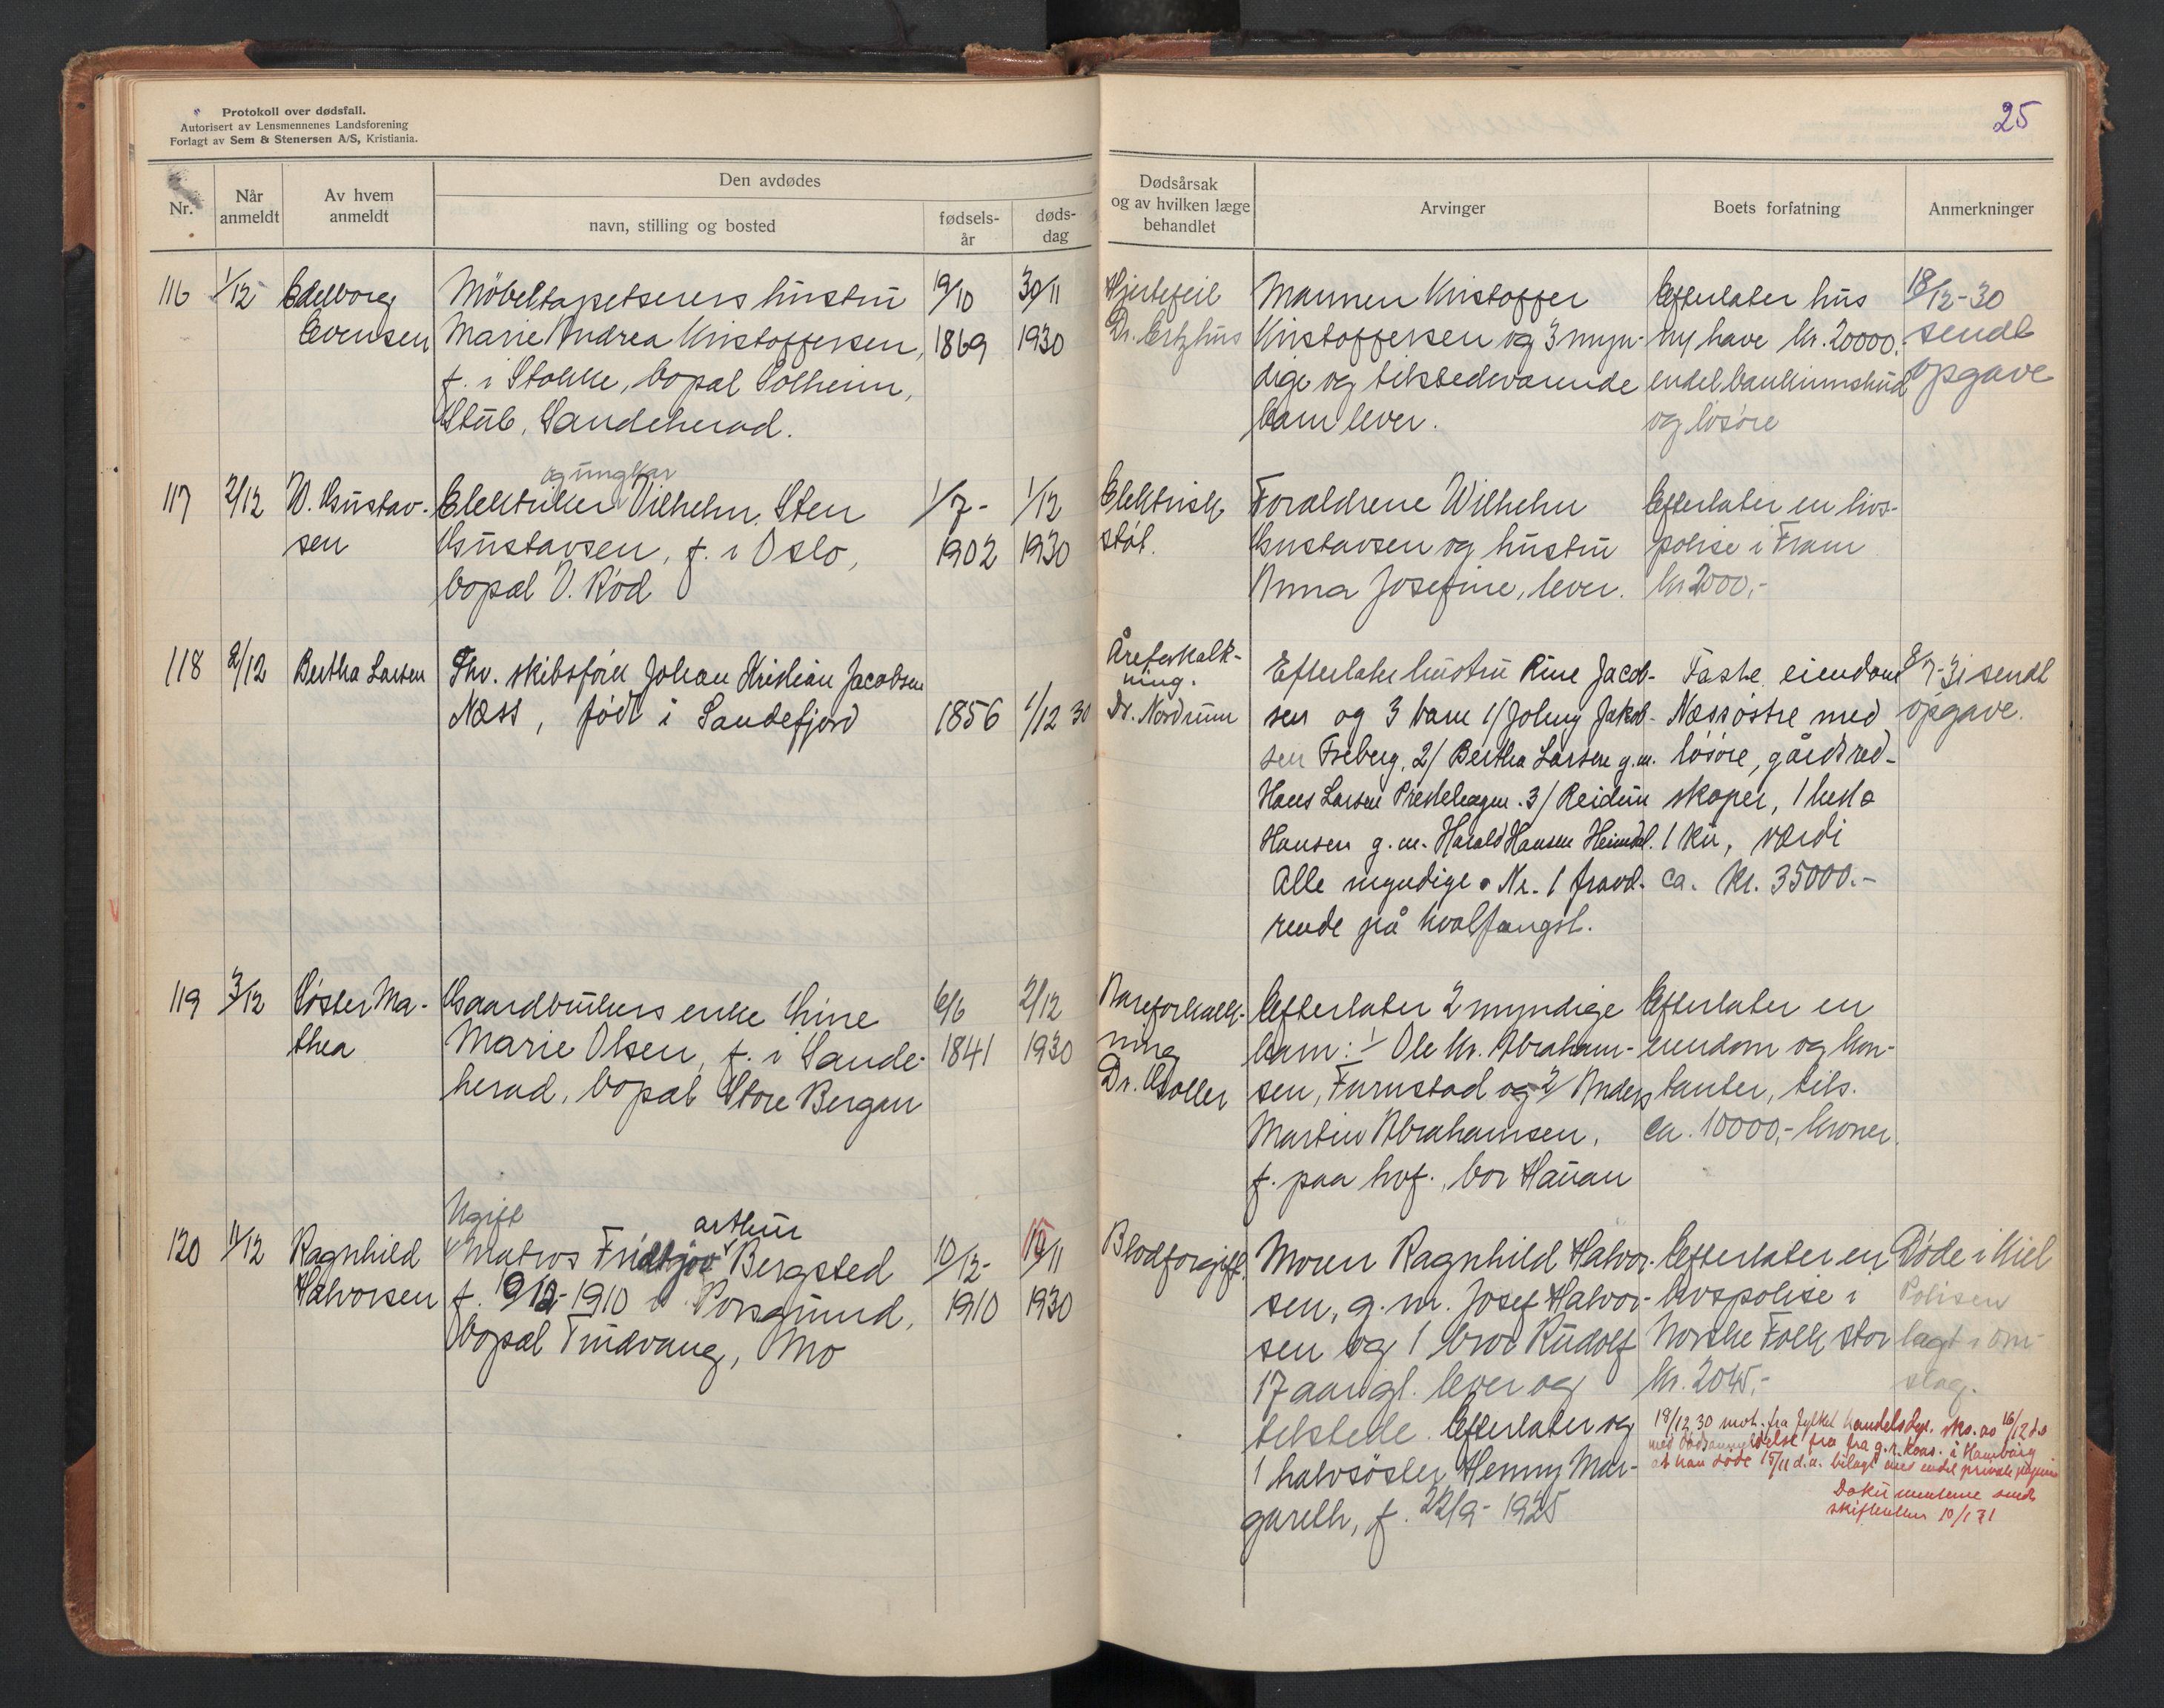 Protokoll over dødsfall.
Autorisert av Lensmennenes Landsforening
Forlagt av Sem & Stenersen A/S, Kristiania.
Nr.
Når
anmeldt
Av hvem
anmeldt
Den avdødes
navn, stilling og bosted
fødsels-
år
døds-
dag
25
Dødsårsak
og av hvilken læge
behandlet
Arvinger
Boets forfatning
Anmerkninger
116
1/12
Edelborg
Evensen
Möbeltapetserers hustru
Marie Andrea Kristoffersen,
f. i Stokke, bopæl Solheim,
Stub, Sandeherad.
19/10
1869
30/11
1930
Hjertefeil
Mannen Kristoffer
Kristoffersen og 3 myn-
dige og tilstedeværende
barn lever.
Efterlater hus
m/ have kr. 20000.-
endel bankinnskud
og løsøre
18/12-30
sendt
opgave
117
2/12
W. Gustav-
sen
og ungkar
Elektriker Vilhelm Sten
Gustavsen, f. i Oslo,
bopæl V. Rød
1/7-
1902
1/12
1930
Elektrisk
støt.
Forældrene Wilhelm
Gustavsen og hustru
Anna Josefine, lever.
Efterlater en livs-
polise i Fram
kr. 2000,-
118
2/12
Bertha Larsen
Fhv. skibsfører Johan Kristian Jacobsen
Næss, født i Sandefjord
1856
1/12 30
Åreforkalk-
ning.
Dr. Nordrum
Efterlater hustru Rine Jacob-
sen og 3 barn 1/ Johny Jakob-
sen Freberg, 2/ Bertha Larsen g.m.
Hans Larsen Prestehagen. 3/ Reidun
Hansen g.m. Harald Hansen Heimdal.
Alle myndige. Nr. 1 fravæ-
rende på hvalfangst.
Faste eiendom
Næss østre med
løsøre, gårdsred-
skaper, 1 hest
1 ku, værdi
ca. kr. 35000.-
8/7-31 sendt
opgave.
119
3/12
Søster Ma-
thea
Gaardbrukers enke Gine
Marie Olsen, f. i Sande-
herad, bopæl Store Bergan
6/6
1841
2/12
1930
Aareforkalk-
ning
Dr. Goller
Efterlater 2 myndige
barn: 1/ Ole Kr. Abraham-
sen, Furustad og 2/ Anders
Martin Abrahamsen,
f. paa hvf., bor Hauan
Efterlater en
eiendom og kon-
tanter, tils.
ca. 10000,- kroner.
120
11/12
Ragnhild
Halvorsen
Ugift
Matros Fridtjov arthur Bergsted
f. 10/12-1910 i Porsgrund,
bopæl Tindvang, Mo
10/12-
1910
15/11
1930
Blodforgift.
Moren Ragnhild Halvor-
sen, g.m. Josef Halvor-
sen og 1 bror Rudolf
17 aar gl. lever og
tilstede. Efterlater og
1 halvsöster Henny Mar-
greth, f. 22/9-1925
Efterlater en
livspolise i
Norske Folk stor
kr. 2045,-
Døde i Kiel
Polisen
lagt i om-
slag.
18/12 30 mot. fra fylket handelsdep. skr. av 16/12 d.å
med dødsanmeldelse fra g.k. kons. i Hamburg
at han døde 15/11 d.å. bilagt med endel private papirer
Dokumentene sendt
skifteretten 10/1 31